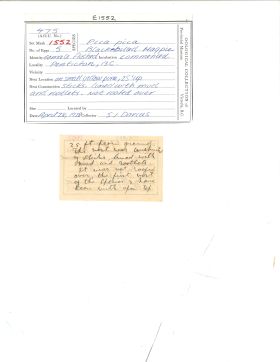 E1552
475
(A.O.U. No.)
Set Mark 1552 Pica pica
No. of Eggs 5 Black-billed Magpie
Identity Incubation commenced
Locality Penticton, B.C.
Vicinity
Nest Location in small yellow pine, 25' up
Nest Construction sticks lined with mud
and rootlets. Not roofed over
Size Located by
Date April 28, Collector S J Darcus
OOLOGICAL COLLECTION
25 ft from ground
The nest was
of sticks lined with
mud and rootlets
It was not roofed
over, the first nest
of the species I have
seen with open top